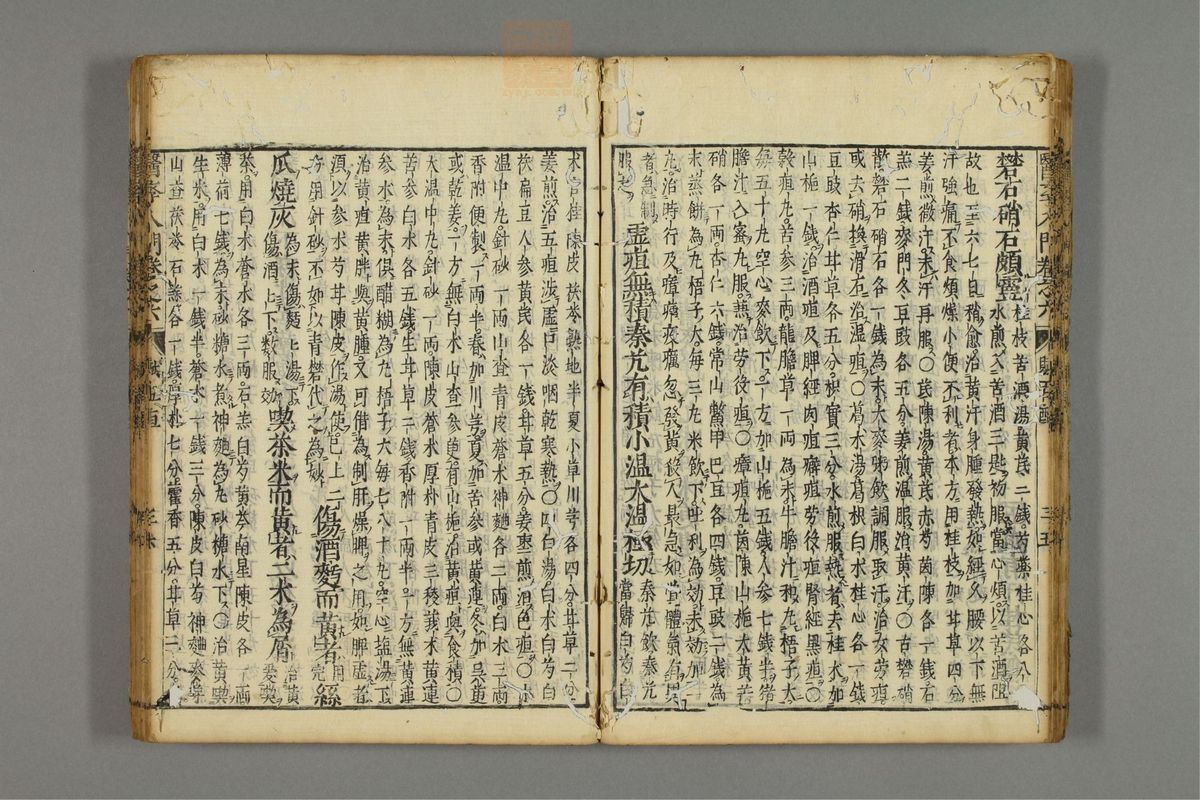 礬石硝石頗靈 桂枝苦酒湯黃芪二錢芍藥桂心各八分
水煎入苦酒三匙初服當心煩以苦酒阻
故也至六七日稍愈治黃汗身腫發熱如經久腰以下無
汗強痛不食煩燥小便不利者本方用桂枝加甘草四分
姜煎微汗未汗再服○芪陳湯黃芪赤芍茵陳各二錢石
羔二錢麥門冬豆豉各五分姜煎溫服治黃汗○古礬硝
散礬石硝石各一錢為末大麥粥飲調服取汗治女勞疸
或去硝換滑石治濕疸○葛朮湯葛根白朮桂心各一錢
豆豉杏仁甘草各五分枳實三分水煎服熱者去桂朮加
山梔一錢治酒疸及脾經肉疸癖疸勞役疸腎經黑疸○
穀疸丸苦參三兩龍膽草一兩為末牛膽汁和丸梧子大
每五十丸空心麥飲下一方加山梔五錢人參七錢半猪
膽汁入蜜丸服熱治勞役疸○瘴疸丸茵陳山梔大黃芒
硝各一兩杏仁六錢常山鱉甲巴豆各四錢豆豉二錢為
末蒸餅為丸梧子大每三丸米飲下吐利為効未効加一
丸治時行及瘴瘧疫癘忽發黃殺人最急如覺體氣有異
者急制
服起 虛疸無積秦艽有積小溫大溫極切 秦艽飲秦艽
當歸白芍白
朮官桂陳皮茯苓熟地半夏小草川芎各四分甘草二分
姜煎治五疸波虛口淡咽乾寒熱○四白湯白朮白芍白
茯扁豆人參黃芪各一錢甘草五分姜棗煎治色疸○小
溫中丸針砂一兩山查青皮蒼朮神麯各二兩白朮三兩
香附便製一兩半春加川芎夏加苦參或黃連冬加吳萸
或乾姜一方無白朮山查一參更有山梔治黃疸與食積○
大溫中丸針砂一兩陳皮蒼朮厚朴青皮三稜莪朮黃連
苦參白朮各五錢生甘草二錢香附一兩半一方無黃連
參朮為末俱醋糊為丸梧子大每七八十丸空心塩湯下
治黃疸黃胖與黃腫又可借為制肝燥脾之用如脾虛者
須以參朮芍甘陳皮作湯使已上二
方用針砂不如以青礬代之為妙 傷酒麥而黃者 用
完 絲
瓜燒灰 為末傷麵麥湯下
傷酒酒上下數服効 喫茶米而黃者二朮為屑 治黃
愛喫
茶用白朮蒼朮各三兩石羔白芍黃芩南星陳皮各一兩
薄荷七錢為末砂糖水煮神麯為丸砂糖水下○治黃喫
生米用白朮一錢半蒼朮一錢三分陳皮白芍神麯麥芽
山查茯苓石羔各一錢厚朴七分藿香五分甘草二分
醫學入門卷之六